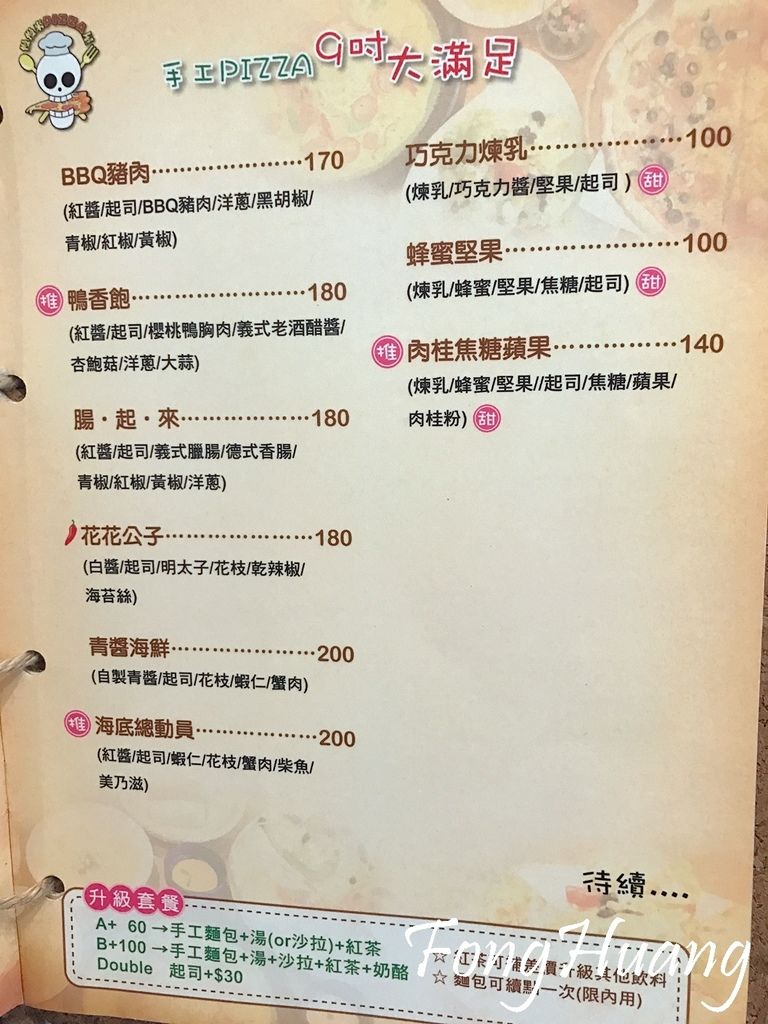 手工PIZZA 9吋大滿足
BBQ豬肉……………………170
(紅醬/起司/BBQ豬肉/洋蔥/黑胡椒/
青椒/紅椒/黃椒)
推 鴨香飽……………………180
(紅醬/起司/櫻桃鴨胸肉/義式老酒醋醬/
杏鮑菇/洋蔥/大蒜)
腸・起・來………………180
(紅醬/起司/義式臘腸/德式香腸/
青椒/紅椒/黃椒/洋蔥)
花花公子…………………180
(白醬/起司/明太子/花枝/乾辣椒/
海苔絲)
青醬海鮮…………………200
(自製青醬/起司/花枝/蝦仁/蟹肉)
推 海底總動員………………200
(紅醬/起司/蝦仁/花枝/蟹肉/柴魚/
美乃滋)
巧克力煉乳…………………100
(煉乳/巧克力醬/堅果/起司 ) 甜
蜂蜜堅果……………………100
(煉乳/蜂蜜/堅果/焦糖/起司) 甜
推 肉桂焦糖蘋果………………140
(煉乳/蜂蜜/堅果//起司/焦糖/蘋果/
肉桂粉) 甜
待續....
升級套餐
A+ 60 →手工麵包+湯(or沙拉)+紅茶
B+100 →手工麵包+湯+沙拉+紅茶+奶酪
Double 起司+$30
☆ 紅茶可補差價升級其他飲料
☆ 麵包可續點一次(限內用)
FongHuang